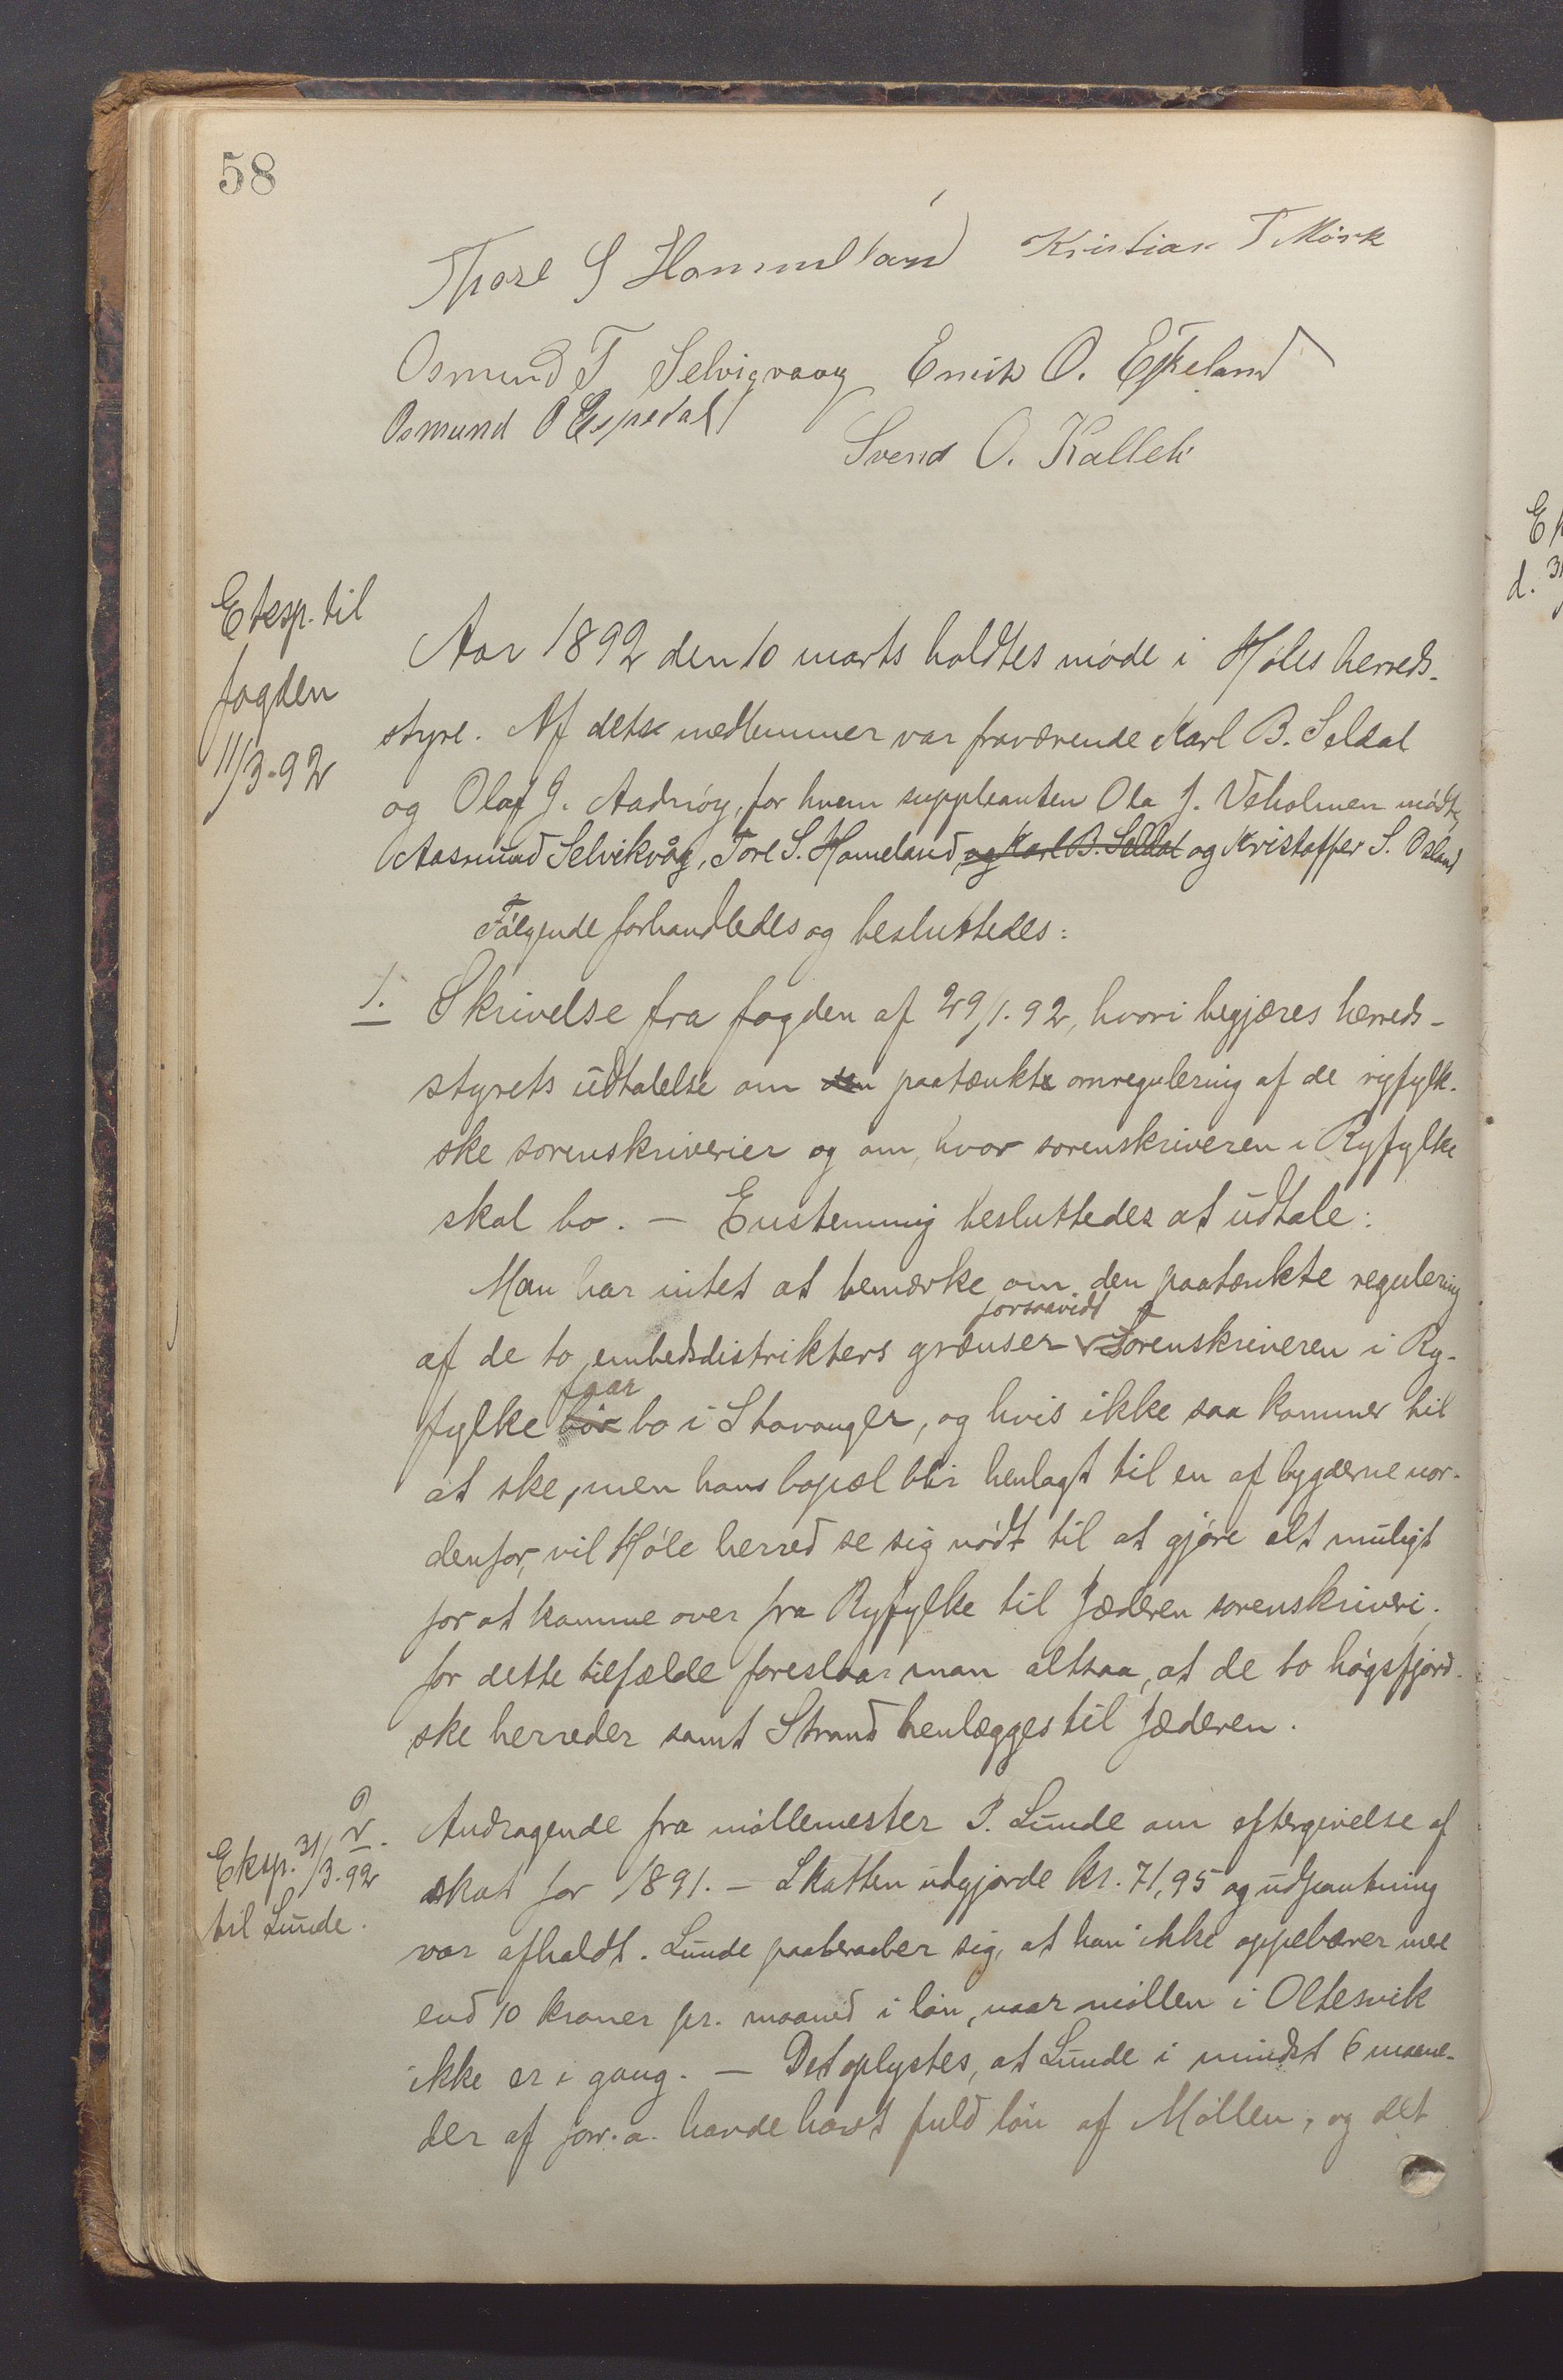 58
Thore S Hommeland Kristian T Mørk
Osmund T Selvigvaag Emik O. Eskeland
Osmund O Espedal
Svend O. Kalleli
Eksp. til
fogden
11/3-92
Aar 1892 den 10 marts holdtes møde i Høles herreds-
styre. Af dets medlemmer var fraværende Karl B. Seldal
og Olaf J. Aadnøy, for hvem suppleanten Ola J. Veholmen mødte,
Aasmund Selvikvåg, Tore S. Homeland og Karl B. Seldal og Kristoffer S. Osland
Følgende forhandledes og besluttedes:
1. Skrivelse fra fogden af 29/1. 92, hvori begjæres herreds-
styrets udtalelse om den paatænkte omregulering af de ryfylk-
ske sorenskriverier og om, hvor sorenskriveren i Ryfylke
skal bo. — Enstemmig besluttedes at udtale:
Man har intet at bemærke om den paatænkte regulering
af de to embedsdistrikters grænser forsaavidt Sorenskriveren i Ry-
fylke bør faar bo i Stavanger, og hvis ikke saa kommer til
at ske, men hans bopæl blir henlagt til en af bygderne nor-
denfor, vil Høle herred se sig nødt til at gjøre alt muligt
for at komme over fra Ryfylke til Jæderen sorenskriveri.
for dette tilfælde foreslaar man altsaa, at de to høgsfjord-
ske herreder samt Strand henlægges til Jæderen.
Eksp. 31/3.92
til Lunde.
2. Andragende fra møllemester P. Lunde om eftergivelse af
skat for 1891. — Skatten udgjorde kr. 71,95 og udpantning
var afholdt. Lunde paaberaaber sig, at han ikke oppebærer mere
end 10 kroner pr. maaned i løn, naar møllen i Oltesvik
ikke er i gang. — Det oplystes, at Lunde i mindst 6 maane-
der af forr. a. havde havt fuld løn af Møllen, og det